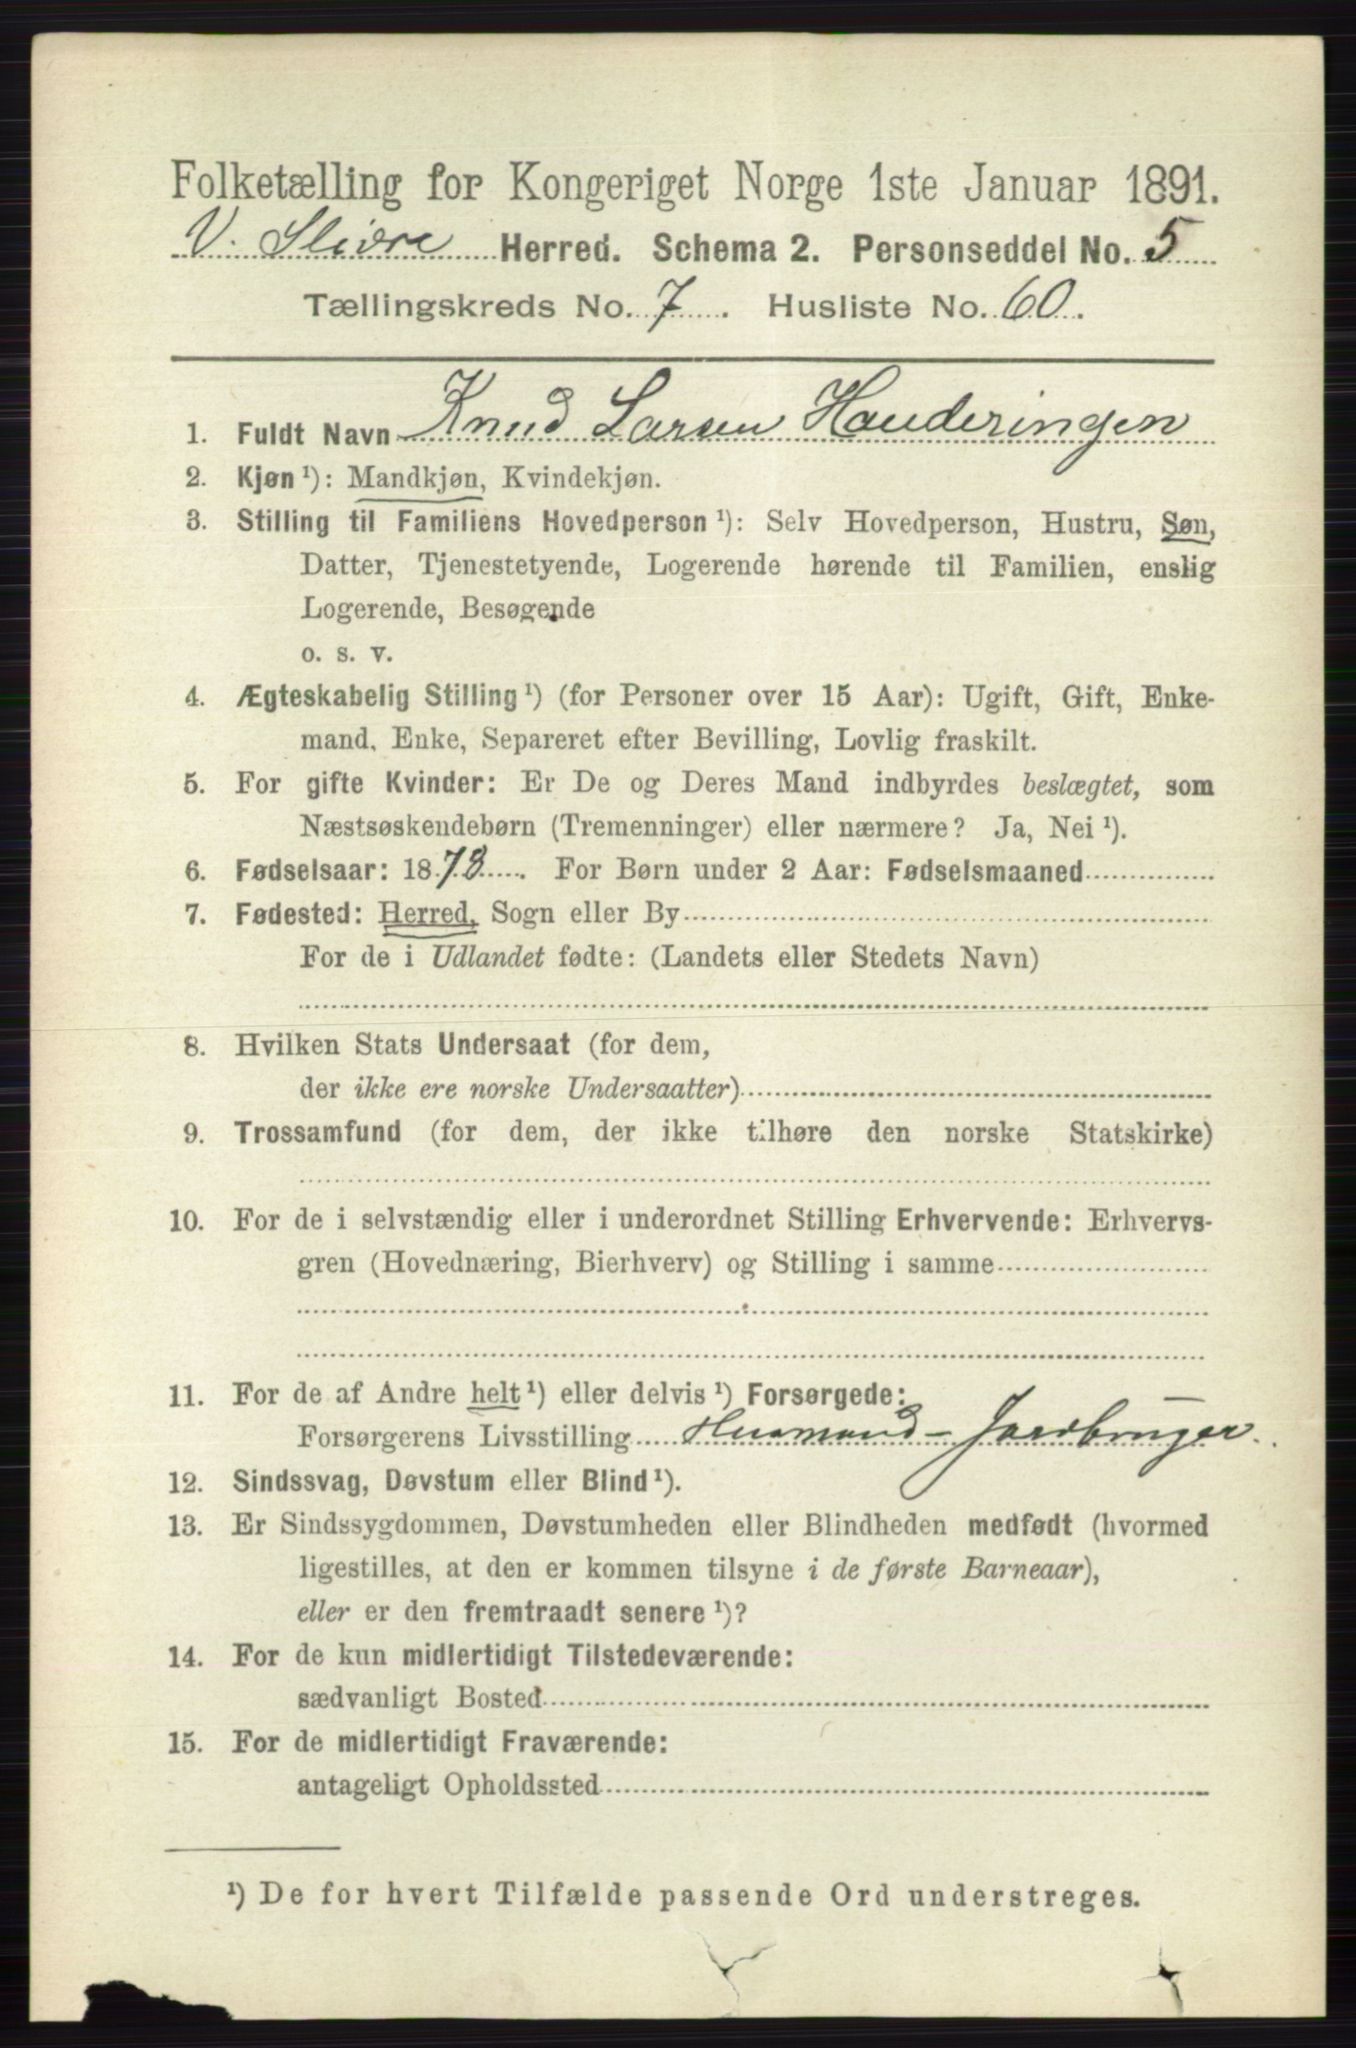 Folketælling for Kongeriget Norge 1ste Januar 1891.
V. Slidre Herred. Schema 2. Personseddel No. 5
Tællingskreds No. 7. Husliste No. 60.
1. Fuldt Navn Knud Larsen Hauderingen
2. Kjøn ¹): Mandkjøn, Kvindekjøn.
3. Stilling til Familiens Hovedperson ¹): Selv Hovedperson, Hustru, Søn,
Datter, Tjenestetyende, Logerende hørende til Familien, enslig
Logerende, Besøgende
o. s. v.
4. Ægteskabelig Stilling ¹) (for Personer over 15 Aar): Ugift, Gift, Enke-
mand, Enke, Separeret efter Bevilling, Lovlig fraskilt.
5. For gifte Kvinder: Er De og Deres Mand indbyrdes beslægtet, som
Næstsøskendebørn (Tremenninger) eller nærmere? Ja, Nei ¹).
6. Fødselsaar: 1878. For Børn under 2 Aar: Fødselsmaaned
7. Fødested: Herred, Sogn eller By
For de i Udlandet fødte: (Landets eller Stedets Navn)
8. Hvilken Stats Undersaat (for dem,
der ikke ere norske Undersaatter)
9. Trossamfund (for dem, der ikke tilhøre den norske Statskirke)
10. For de i selvstændig eller i underordnet Stilling Erhvervende: Erhvervs-
gren (Hovednæring, Bierhverv) og Stilling i samme
11. For de af Andre helt ¹) eller delvis ¹) Forsørgede:
Forsørgerens Livsstilling Husmand - Jordbruger.
12. Sindssvag, Døvstum eller Blind ¹).
13. Er Sindssygdommen, Døvstumheden eller Blindheden medfødt (hvormed
ligestilles, at den er kommen tilsyne i de første Barneaar),
eller er den fremtraadt senere ¹)?
14. For de kun midlertidigt Tilstedeværende:
sædvanligt Bosted
15. For de midlertidigt Fraværende:
antageligt Opholdssted
¹) De for hvert Tilfælde passende Ord understreges.